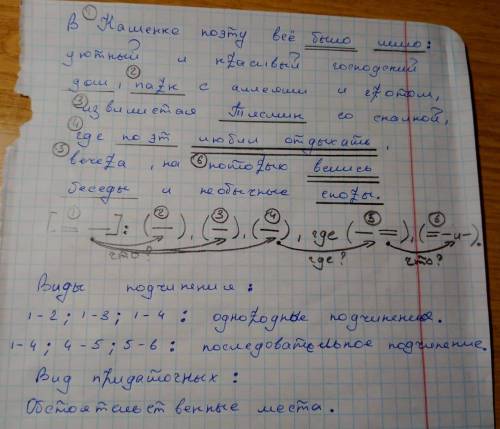 В ① Каменке поэту всё было мило:
уютный и красивый господский
дом, ② парк с аллеями и гротом,
③ извилистая Тясмин со скалой,
④ где поэт любил отдыхать,
⑤ вечера, на ⑥ которых велись
беседы и необычные споры.
[① = —]: (② —), (③ —), (④ —), где (⑤ — =), (⑥ = — и —).
что? где? что?
Виды подчинения:
1-2; 1-3; 1-4: однородные подчинения.
1-4; 4-5; 5-6: последовательное подчинение.
Вид придаточных:
Обстоятельственные места.